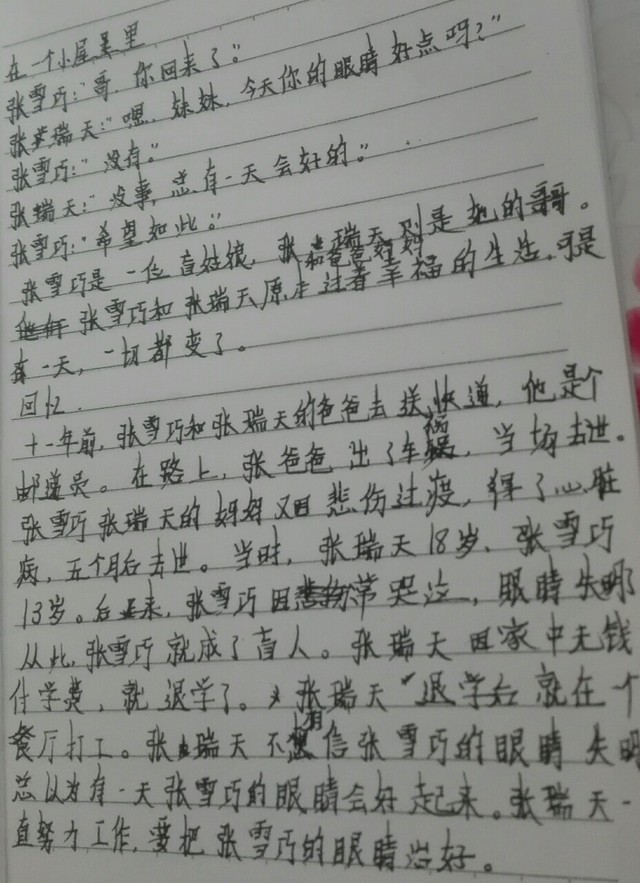 在一个小屋里
张雪巧：“哥，你回来了。”
张瑞天：“嗯，妹妹，今天你的眼睛好点吗？”
张雪巧：“没有。”
张瑞天：“没事，总有一天会好的。”
张雪巧：“希望如此。”
张雪巧是一位盲姑娘，张瑞天则是她的哥哥。
张雪巧和张瑞天原本和爸爸妈妈过着幸福的生活，可是
有一天，一切都变了。
回忆.
十一年前，张雪巧和张瑞天的爸爸去送快递，他是个
邮递员。在路上，张爸爸出了车祸，当场去世。
张雪巧张瑞天的妈妈又因悲伤过度，得了心脏
病，五个月后去世。当时，张瑞天18岁，张雪巧
13岁。后来，张雪巧因常哭泣，眼睛失明
从此，张雪巧就成了盲人。张瑞天因家中无钱
付学费，就退学了。张瑞天退学后就在一个
餐厅打工。张瑞天不相信张雪巧的眼睛失明
总以为有一天张雪巧的眼睛会好起来。张瑞天一
直努力工作，要把张雪巧的眼睛治好。